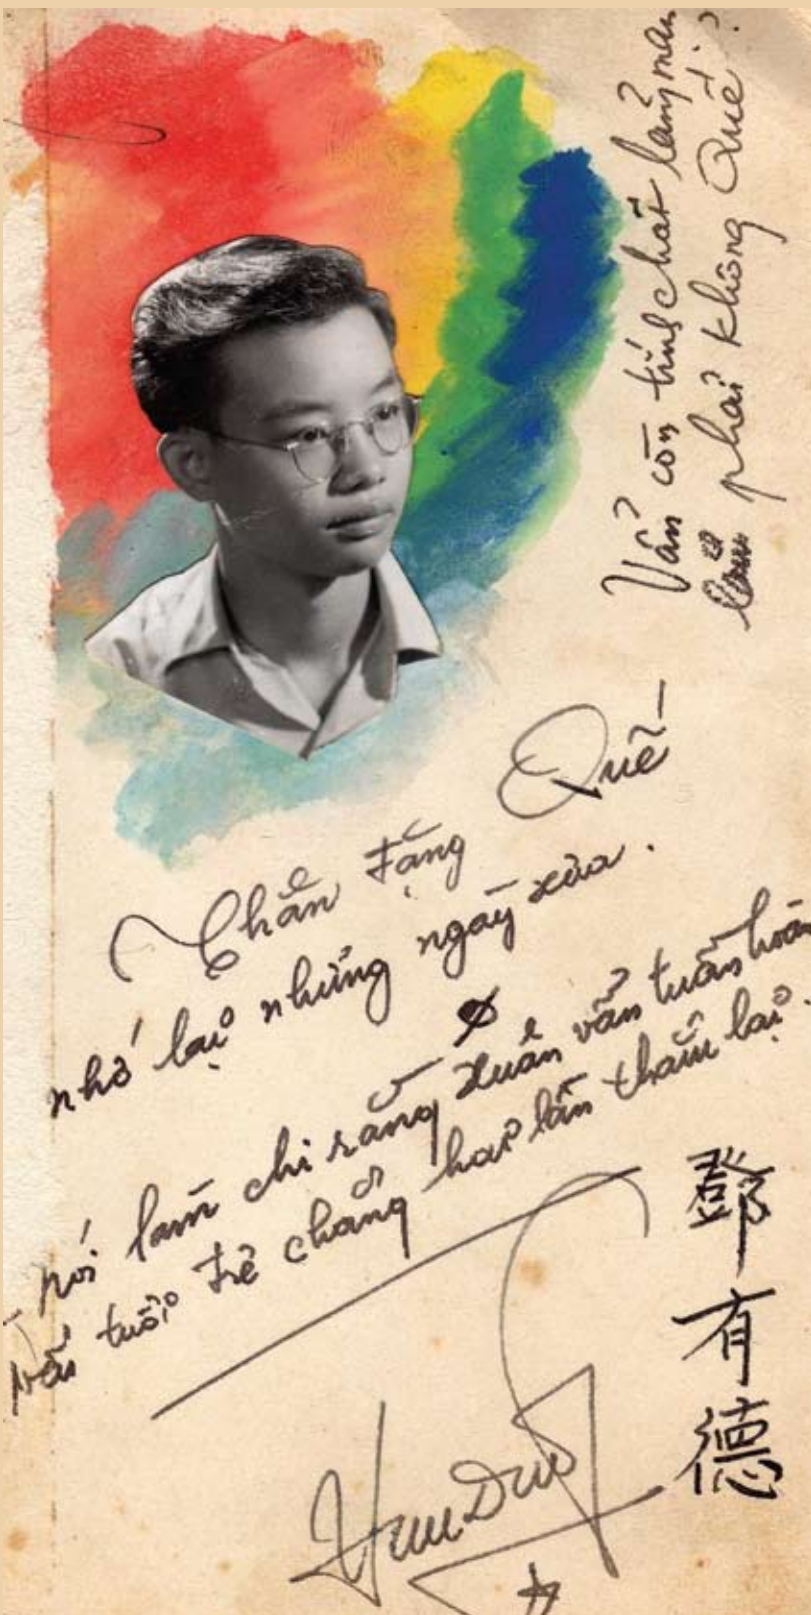 Vẩn còn tính chất lảng man
lắm phải không Quế !?
Thân tặng Quế –
nhớ lại những ngày xưa .
nói làm chi rằng xuân vẩn tuần hoàn
tuổi trẻ chẳng hai lần thắm lại .
鄧有德
HuuDuc